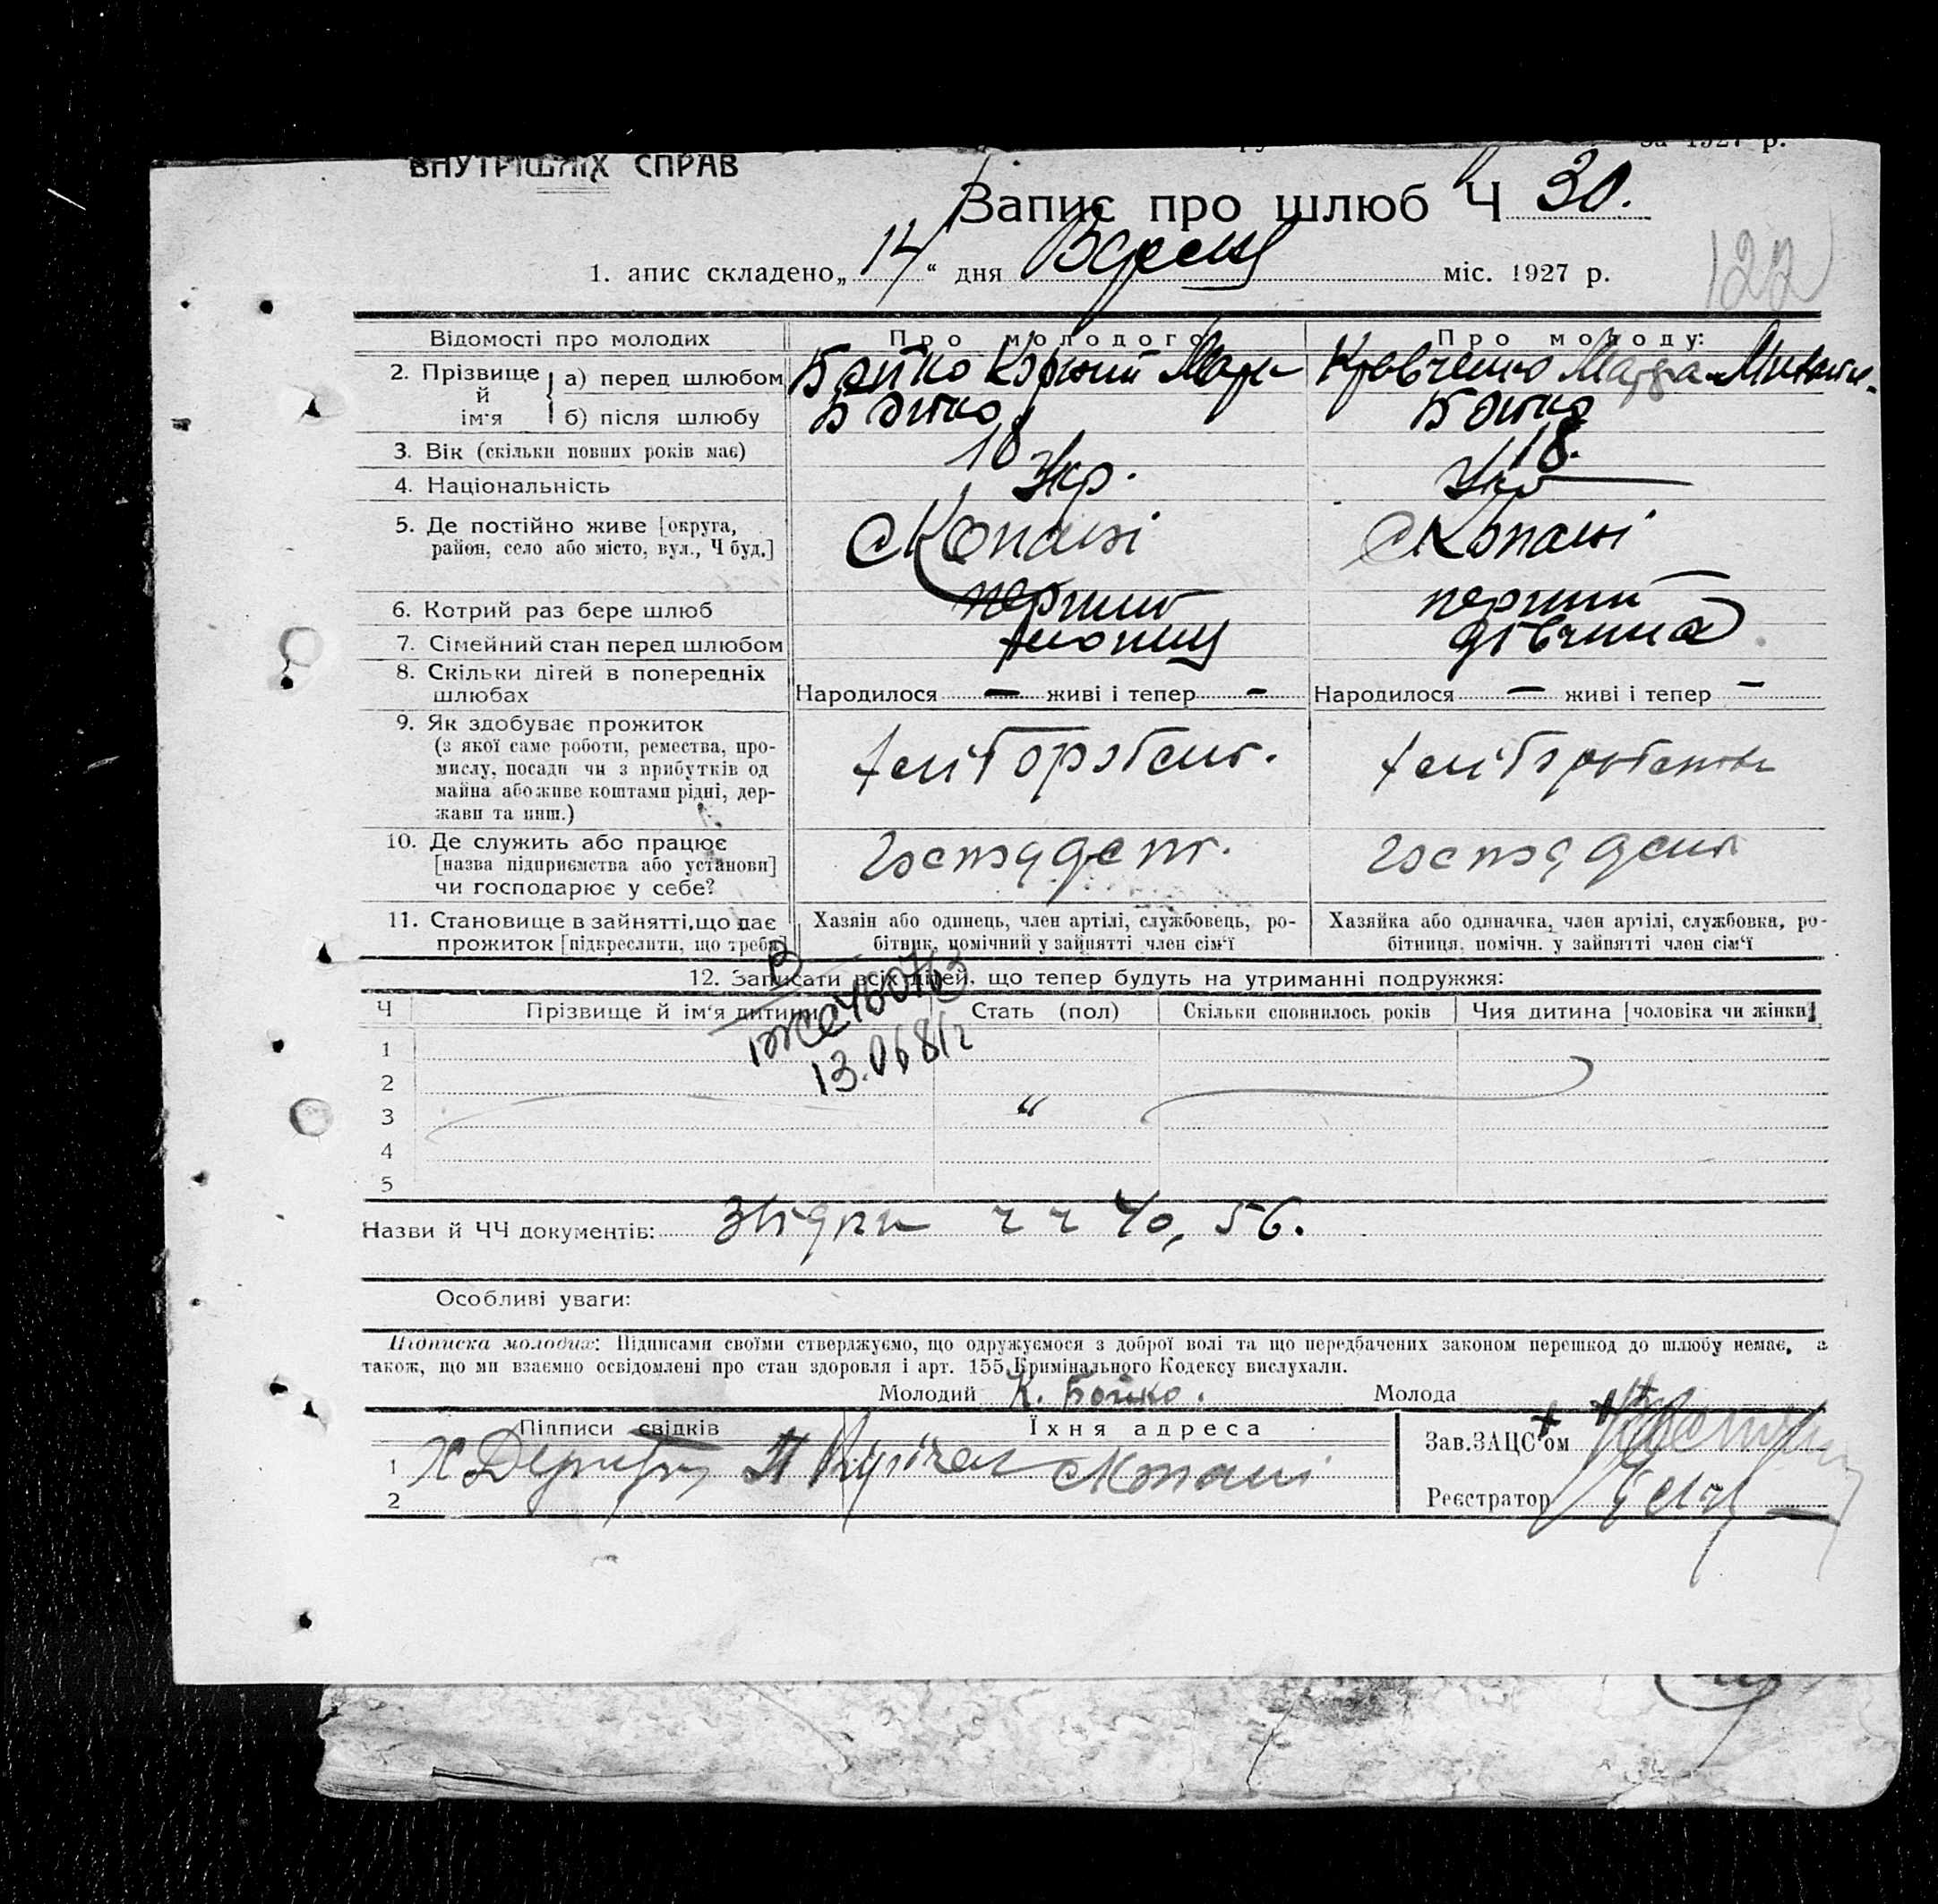 ВНУТРІШНІХ СПРАВ
за 1927 р.
Запис про шлюб Ч 30.
122
1. апис складено „14“ дня Вересня міс. 1927 р.
Відомості про молодих
Про молодого
Про молоду:
2. Прізвище й ім'я
а) перед шлюбом
Бойко Корній Марк
Кравченко Марфа Михайл.
б) після шлюбу
Бойко
Бойко
3. Вік (скільки повних років має)
18
18.
4. Національність
Укр.
Укр
5. Де постійно живе [округа,
район, село або місто, вул., Ч буд.]
с Копані
с Копані
6. Котрий раз бере шлюб
перший
перший
7. Сімейний стан перед шлюбом
дівчина
8. Скільки дітей в попередніх
шлюбах
Народилося — живі і тепер -
Народилося — живі і тепер -
9. Як здобуває прожиток
(з якої саме роботи, ремества, про-
мислу, посади чи з прибутків од
майна або живе коштами рідні, дер-
жави та инш.)
10. Де служить або працює
[назва підприємства або установи]
чи господарює у себе?
11. Становище в зайнятті, що дає
прожиток [підкреслити, що треба]
Хазяїн або одинець, член артілі, службовець, ро-
бітник, помічний у зайнятті член сім'ї
Хазяйка або одиначка, член артілі, службовка, ро-
бітниця, помічн. у зайнятті член сім'ї
12. Записати всіх дітей, що тепер будуть на утриманні подружжя:
Ч
Прізвище й ім'я дитини
Стать (пол)
Скільки сповнилось років
Чия дитина [чоловіка чи жінки]
13.06 81г
1
2
3
4
5
"
Назви й ЧЧ документів: ч ч 40, 56.
Особливі уваги:
Підписка молодих: Підписами своїми стверджуємо, що одружуємося з доброї волі та що передбачених законом перешкод до шлюбу немає, а
також, що ми взаємно освідомлені про стан здоровля і арт. 155 Кримінального Кодексу вислухали.
Молодий К. Бойко.
Молода
+ + +
Підписи свідків
Їхня адреса
Зав.ЗАЦС'ом
1
с Копані
2
Реєстратор